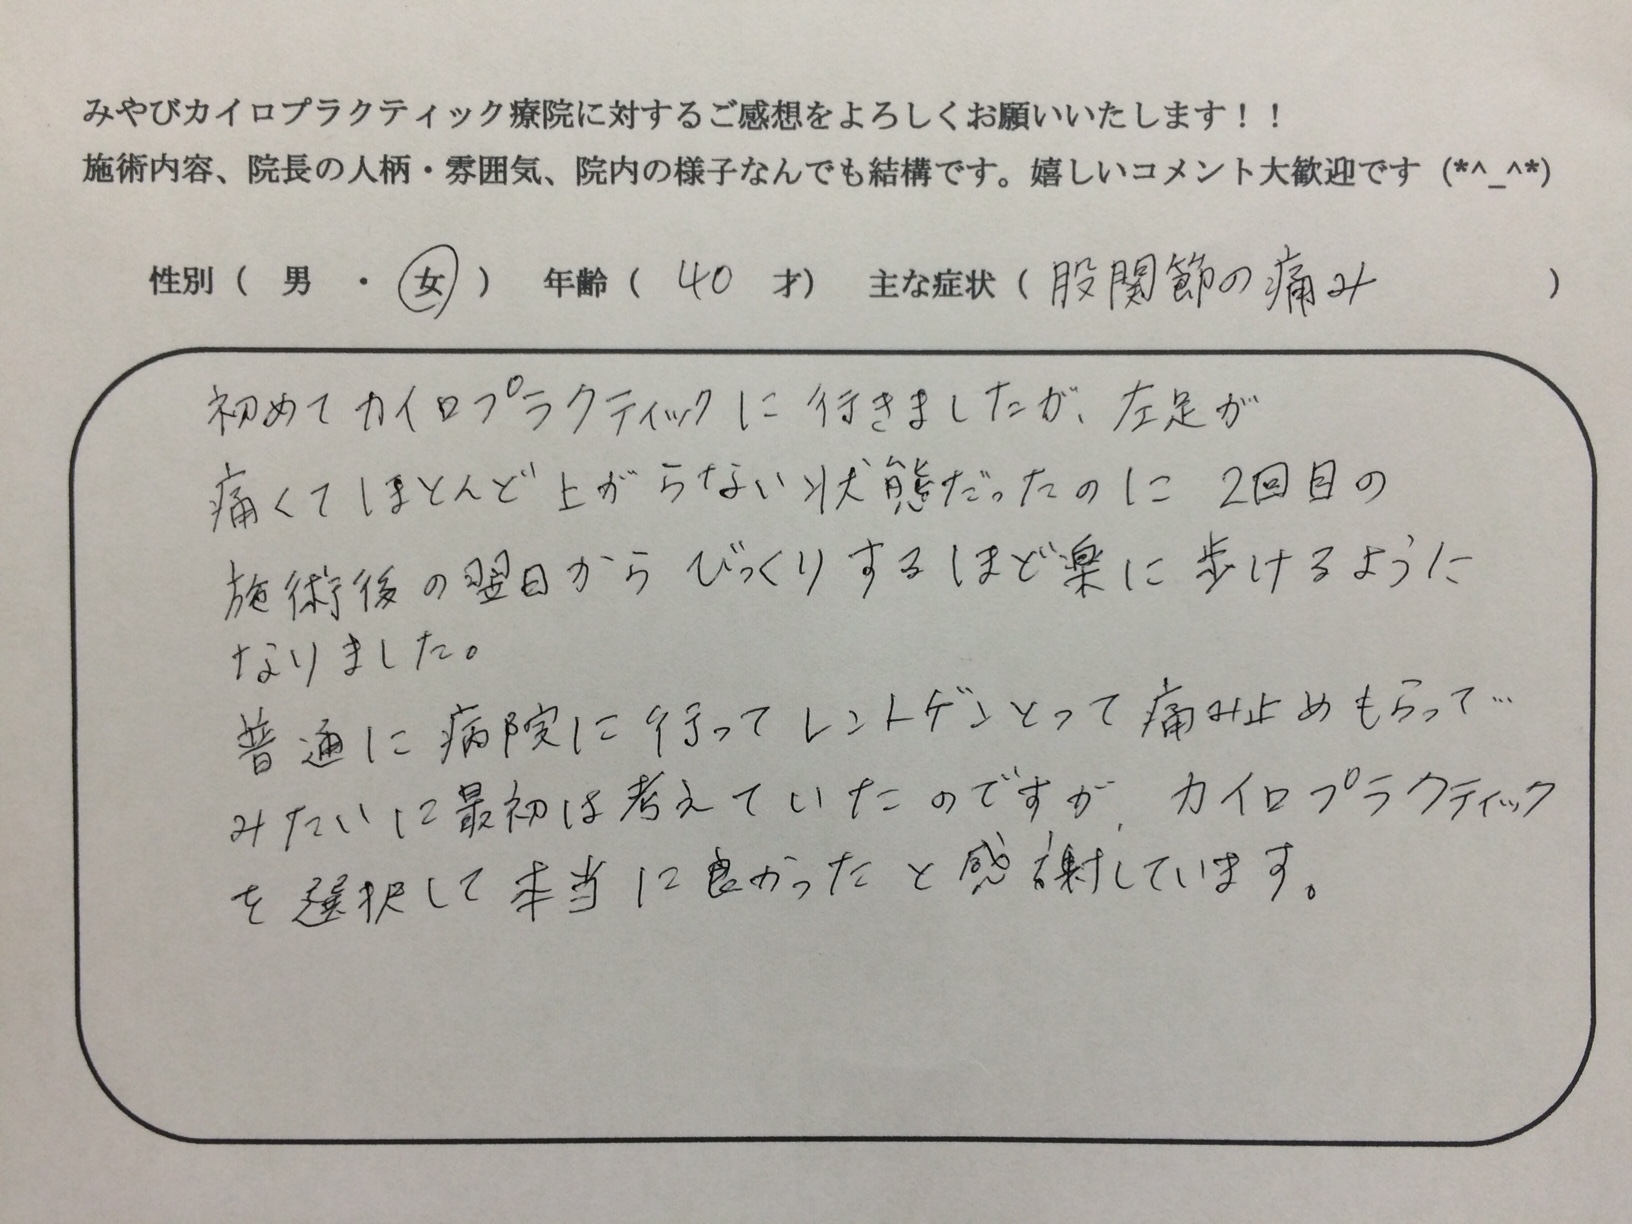 みやびカイロプラクティック療院に対するご感想をよろしくお願いいたします！！
施術内容、院長の人柄・雰囲気、院内の様子なんでも結構です。嬉しいコメント大歓迎です (*^_^*)
性別（ 男 ・ 女 ） 年齢（ 40 才） 主な症状（ 股関節の痛み ）
初めてカイロプラクティックに行きましたが、左足が
痛くてほとんど上がらない状態だったのに 2回目の
施術後の翌日からびっくりするほど楽に歩けるように
なりました。
普通に病院に行ってレントゲンとって痛み止めもらって…
みたいに最初は考えていたのですが、カイロプラクティック
を選択して本当に良かったと感謝しています。